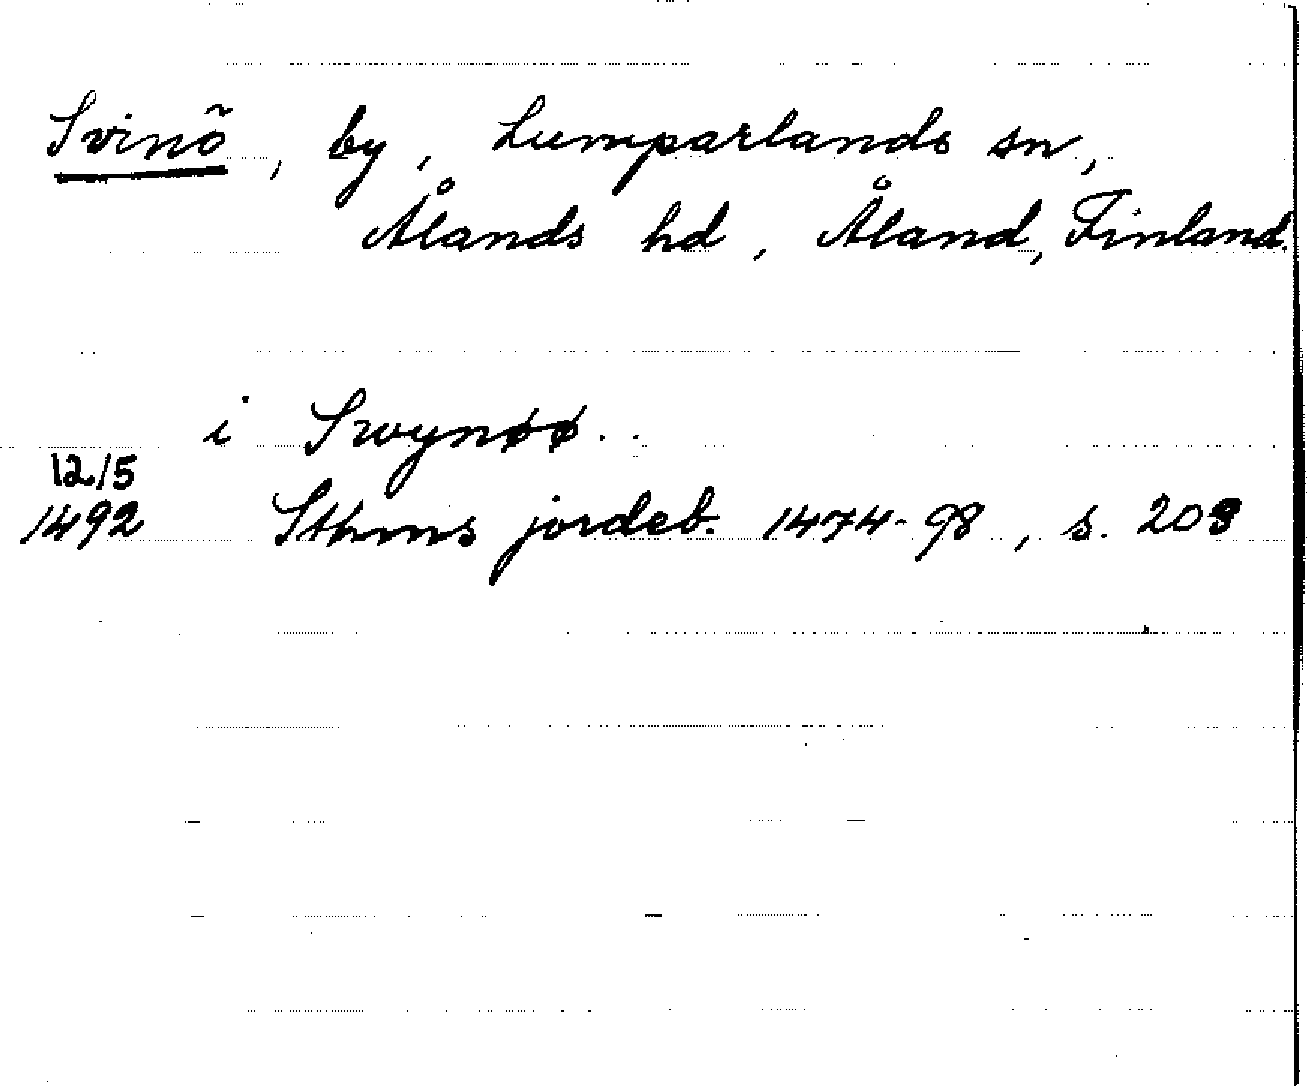 Svinö, by, Lumparlands sn,
Ålands hd, Åland, Finland.
i Swynøø..
12/5
1492 Sthms jordeb. 1474-98, s. 203